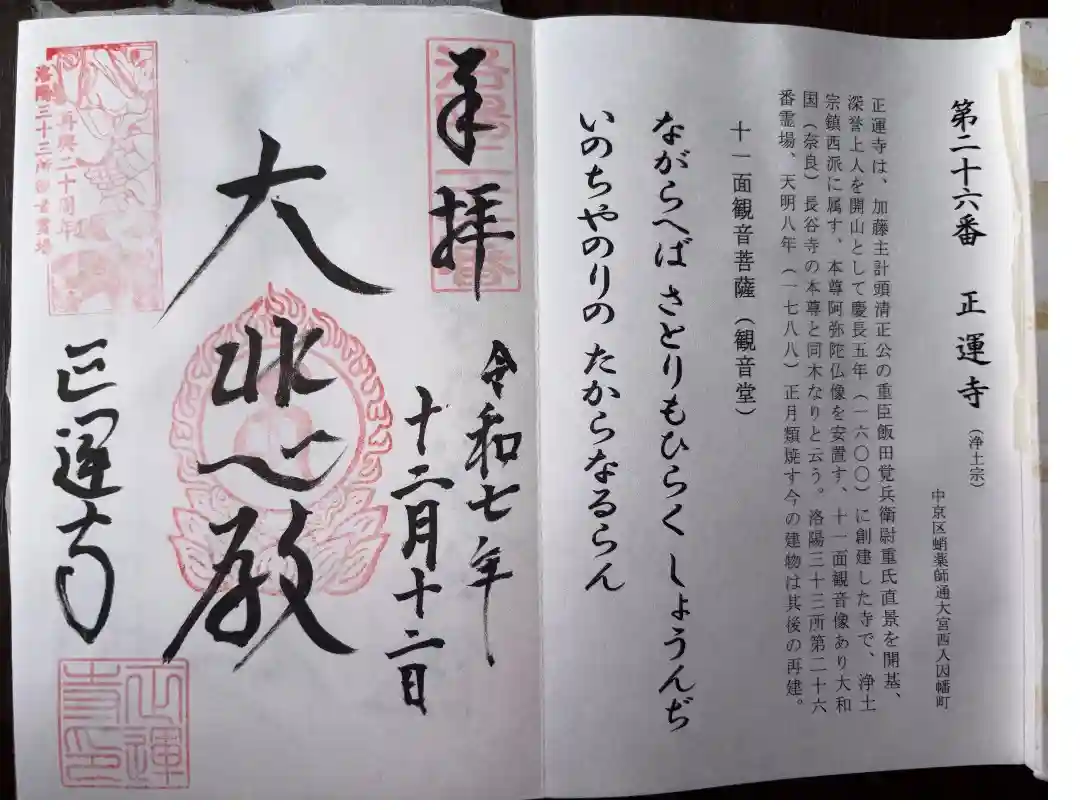 第二十六番　正運寺（浄土宗）
中京区蛸薬師通大宮西入因幡町
正運寺は、加藤主計頭清正公の重臣飯田覚兵衛尉重氏直景を開基、
深誉上人を開山として慶長五年（一六〇〇）に創建した寺で、浄土
宗鎮西派に属す、本尊阿弥陀仏像を安置す、十一面観音像あり大和
国（奈良）長谷寺の本尊と同木なりと云う。洛陽三十三所第二十六
番霊場、天明八年（一七八八）正月類焼す今の建物は其後の再建。
十一面観音菩薩（観音堂）
ながらへば さとりもひらく しょうんぢ
いのちやのりの たからなるらん
奉拝
洛陽二十六番
令和七年
十二月十二日
大悲殿
再興二十周年
洛陽三十三所観音霊場
正運寺
正運寺印